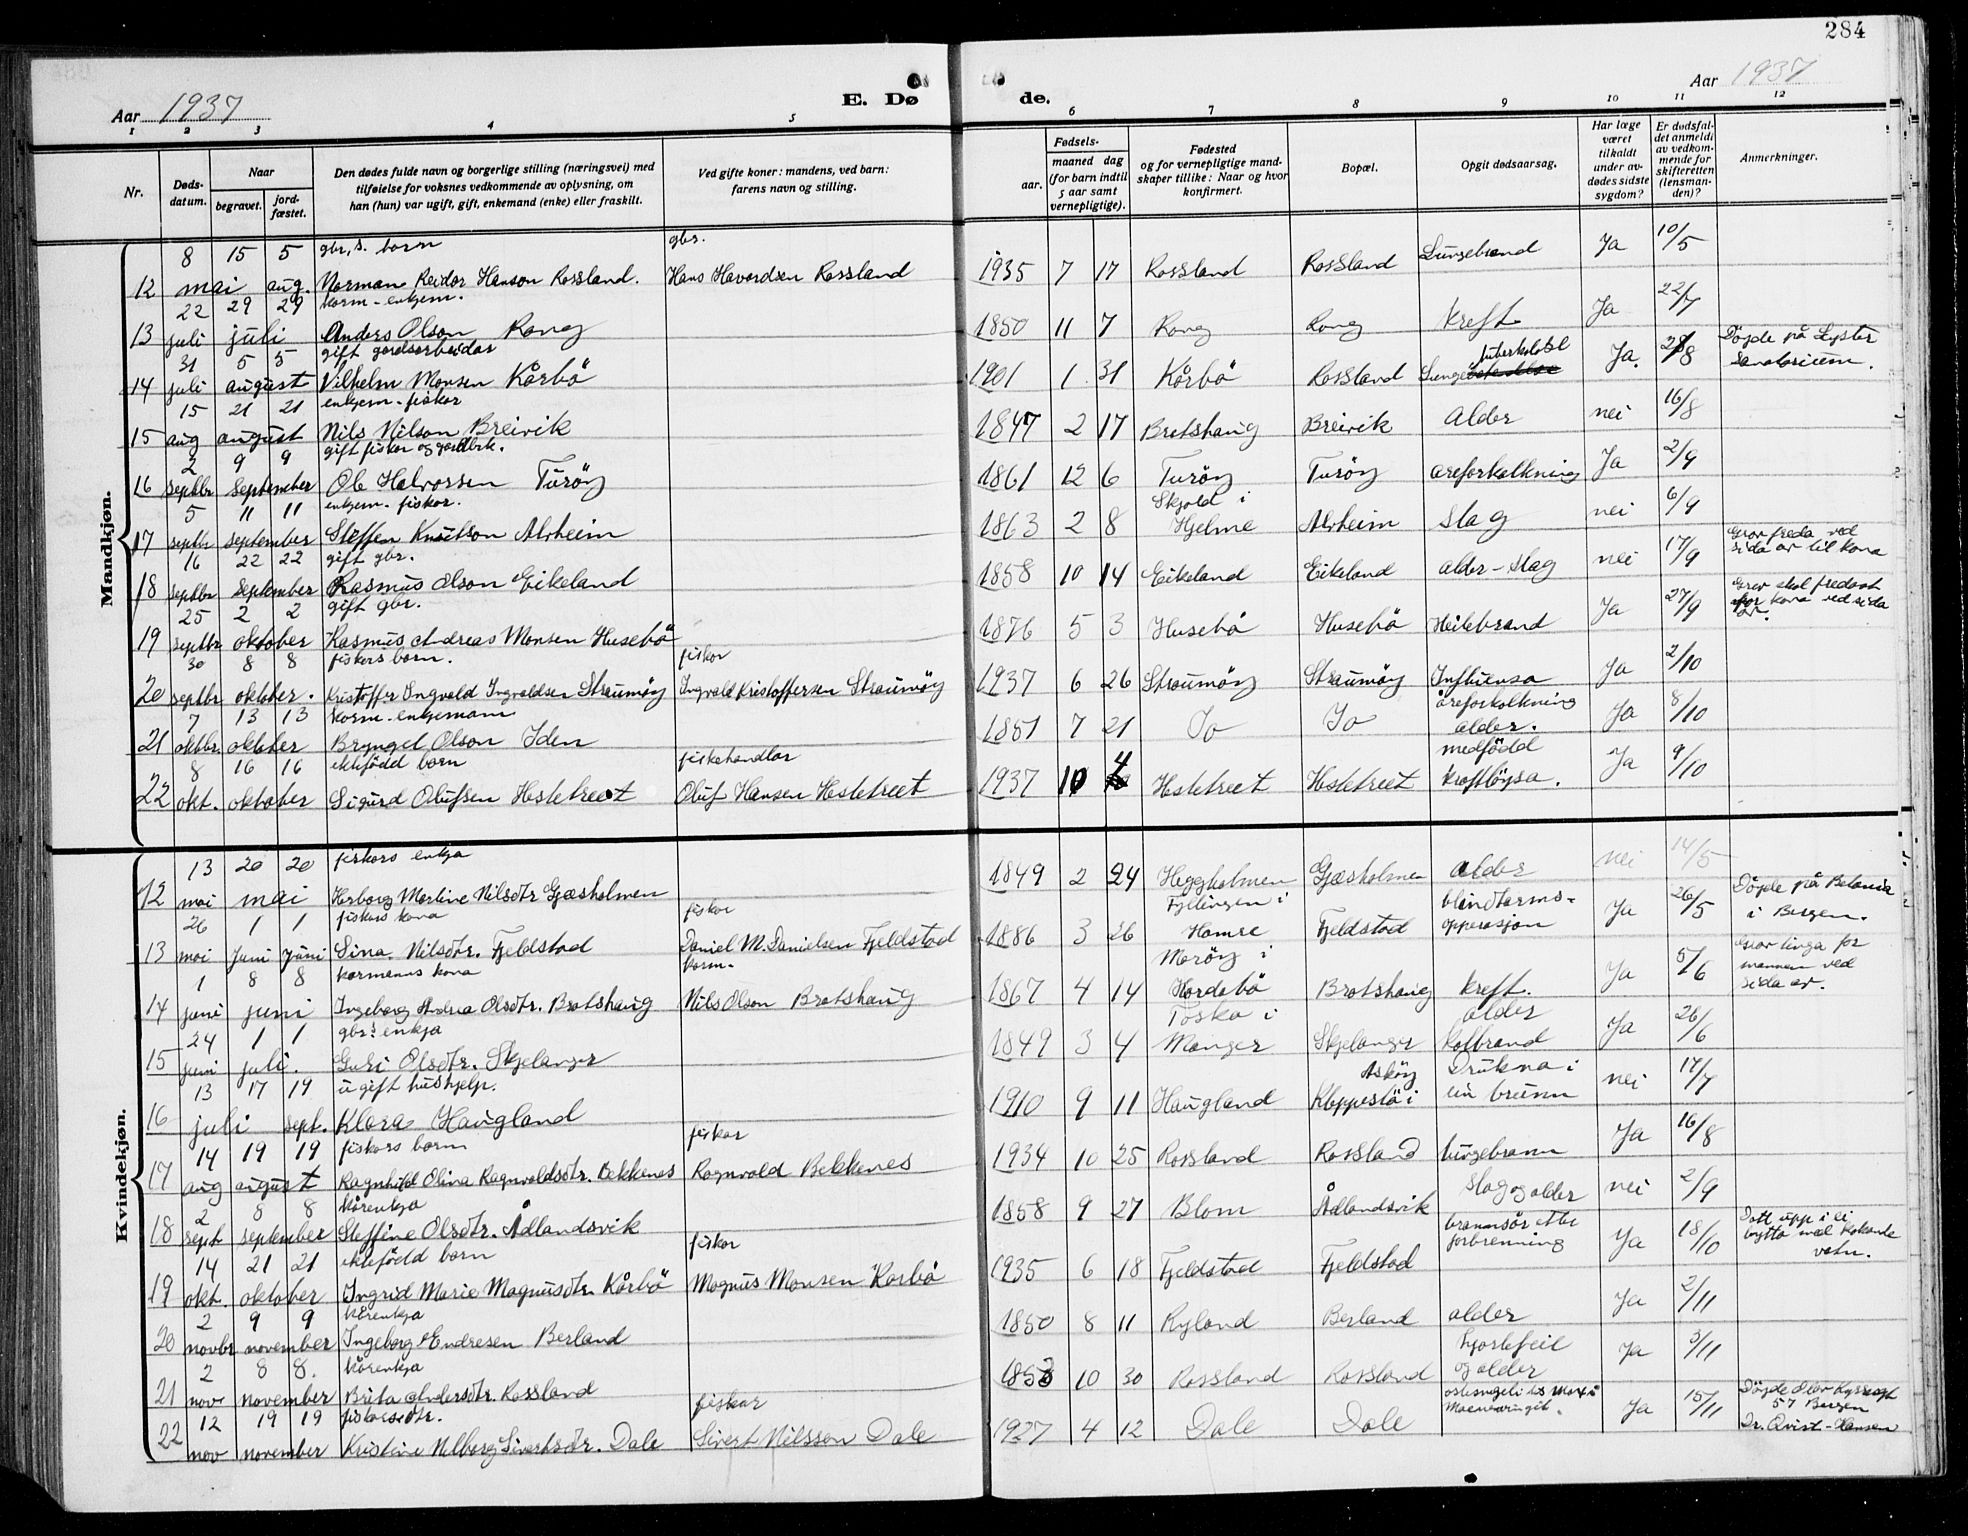 284
Aar 1937
E. Dø
de.
Aar 1937
1 2 3 4 5 6 7 8 9 10 11 12
Nr.
Døds-
datum.
Naar
begravet.
jord-
fæstet.
Den dødes fulde navn og borgerlige stilling (næringsvei) med
tilføielse for voksnes vedkommende av oplysning, om
han (hun) var ugift, gift, enkemand (enke) eller fraskilt.
Ved gifte koner: mandens, ved barn:
farens navn og stilling.
Fødsels-
aar.
maaned dag
(for barn indtil
5 aar samt
vernepligtige).
Fødested
og for vernepligtige mand-
skaper tillike: Naar og hvor
konfirmert.
Bopæl.
Opgit dødsaarsag.
Har læge
været
tilkaldt
under av-
dødes sidste
sygdom?
Er dødsfal-
det anmeldt
av vedkom-
mende for
skifteretten
(lensman-
den)?
Anmerkninger.
Mandkjøn.
8 15 5 gbr.s. born gbr.
12 mai aug. Norman Reidar Hanson Rossland. Hans Havardsen Rossland 1935 7 17 Rossland Rossland Lungebrand Ja 10/5
22 29 29 korm-enkjem.
13 juli juli Anders Olson Rong 1850 11 7 Rong Rong kreft Ja 22/7
31 5 5 gift gardsarbeidar
14 juli august Vilhelm Monsen Kårbö 1901 1 31 Kårbö Rossland Lunge tuberkulose Ja. 28/8 Döyde på Lyster sanatorium.
15 21 21 enkjem-fiskar
15 aug august Nils Nilson Breivik 1847 2 17 Bratshaug Breivik alder nei 16/8
2 9 9 gift fiskar og gardbrk.
16 septbr september Ole Halvorsen Turöy 1861 12 6 Turöy Turöy areforkalkning Ja 2/9
5 11 11 enkjem. fiskar. Skjold i
17 septbr september Steffen Knutson Alvheim 1863 2 8 Hjelme Alvheim slag nei 6/9
16 22 22 gift gbr.
18 septbr September Rasmus Olson Eikeland 1858 10 14 Eikeland Eikeland alder-slag nei 17/9 Grav freda ved sida av til kona
25 2 2 gift gbr.
19 septbr oktober Rasmus Andreas Monsen Husebö 1876 5 3 Husebö Husebö Heilebrand Ja 27/9 Grav skal fredast for kona ved sida av.
30 8 8 fiskers born. fiskar
20 septbr oktober. Kristoffer Ingvald Ingvaldsen Straumöy Ingvald Kristoffersen Straumöy 1937 6 26 Straumöy Straumöy Influensa Ja 2/10
7 13 13 korm-enkjemann åreforkalkning
21 oktbr oktober Bryngel Olson Iden 1851 7 21 Io Io alder. Ja 8/10
8 16 16 ektefödd born fiskehandlar medfödd
22 okt. oktober Sigurd Olufsen Hestetreet Oluf Hansen Hestetreet 1937 10 4 Hestetreet Hestetreet kraftlöysa. Ja 9/10
Kvindekjøn.
13 20 20 fiskars enkja
12 mai mai Herborg Martine Nilsdtr Gjæsholmen 1849 2 24 Heggholmen Gjæsholmen alder nei 14/5
26 1 1 fiskers kona fiskar Fyllingen i blindtarms-
13 mai Juni Juni Sina Nilsdtr. Fjeldstad Daniel M. Danielsen Fjeldstad 1886 3 26 Hamre Fjeldstad opperasjon Ja 26/5 Döyde på Betania i Bergen.
1 8 8 kormanns kona korm. Maröy i
14 juni juni Ingeborg Andrea Olsdtr. Bratshaug Nils Olson Bratshaug 1867 4 14 Hordabö Bratshaug kreft. Ja 5/6 Grav linga for mannen ved sida av.
24 1 1 gbrs enkja Toska i alder
15 juni juli. Guri Olsdtr. Skjelanger 1849 3 4 Manger Skjelanger kolbrand Ja 26/6
13 17 19 ugift hushjelp. Asköy Drukna i
16 juli sept. Klara Haugland 1910 9 11 Haugland Kleppestö i ein brunn nei 17/7
14 19 19 fiskars born fiskar
17 aug august Ragnhild Olina Ragnvaldsdtr. Bekkenes Ragnvald Bekkenes 1934 10 25 Rossland Rossland lungebrann Ja 16/8
2 8 8 kårenkja
18 sept september Steffine Olsdtr. Ådlandsvik 1858 9 27 Blom Ådlandsvik slag og alder nei 2/9
14 21 21 ektefödd born fiskar brannsår etter
19 okt. oktober Ingrid Marie Magnusdtr. Kårbö Magnus Monsen Kårbö 1935 6 18 Fjeldstad Fjeldstad forbrenning Ja 18/10 Datt upp i ei bytta med kokande vatn.
2 9 9 kårenkja
20 novbr november Ingeborg Endresen Berland 1850 8 11 Ryland Berland alder Ja 2/11
2 8 8. kårenkja hjartefeil
21 nov november Brita Andersdtr. Rossland 1853 10 30 Rossland Rossland og alder Ja 3/11
12 19 19 fiskarsdtr. fiskar
22 nov november Kristine Valborg Sivertsdtr. Dale Sivert Nilsson Dale 1927 4 12 Dale Dale Ja 15/11 Döyde 57 Bergen
Dr. Qvist-Hansen